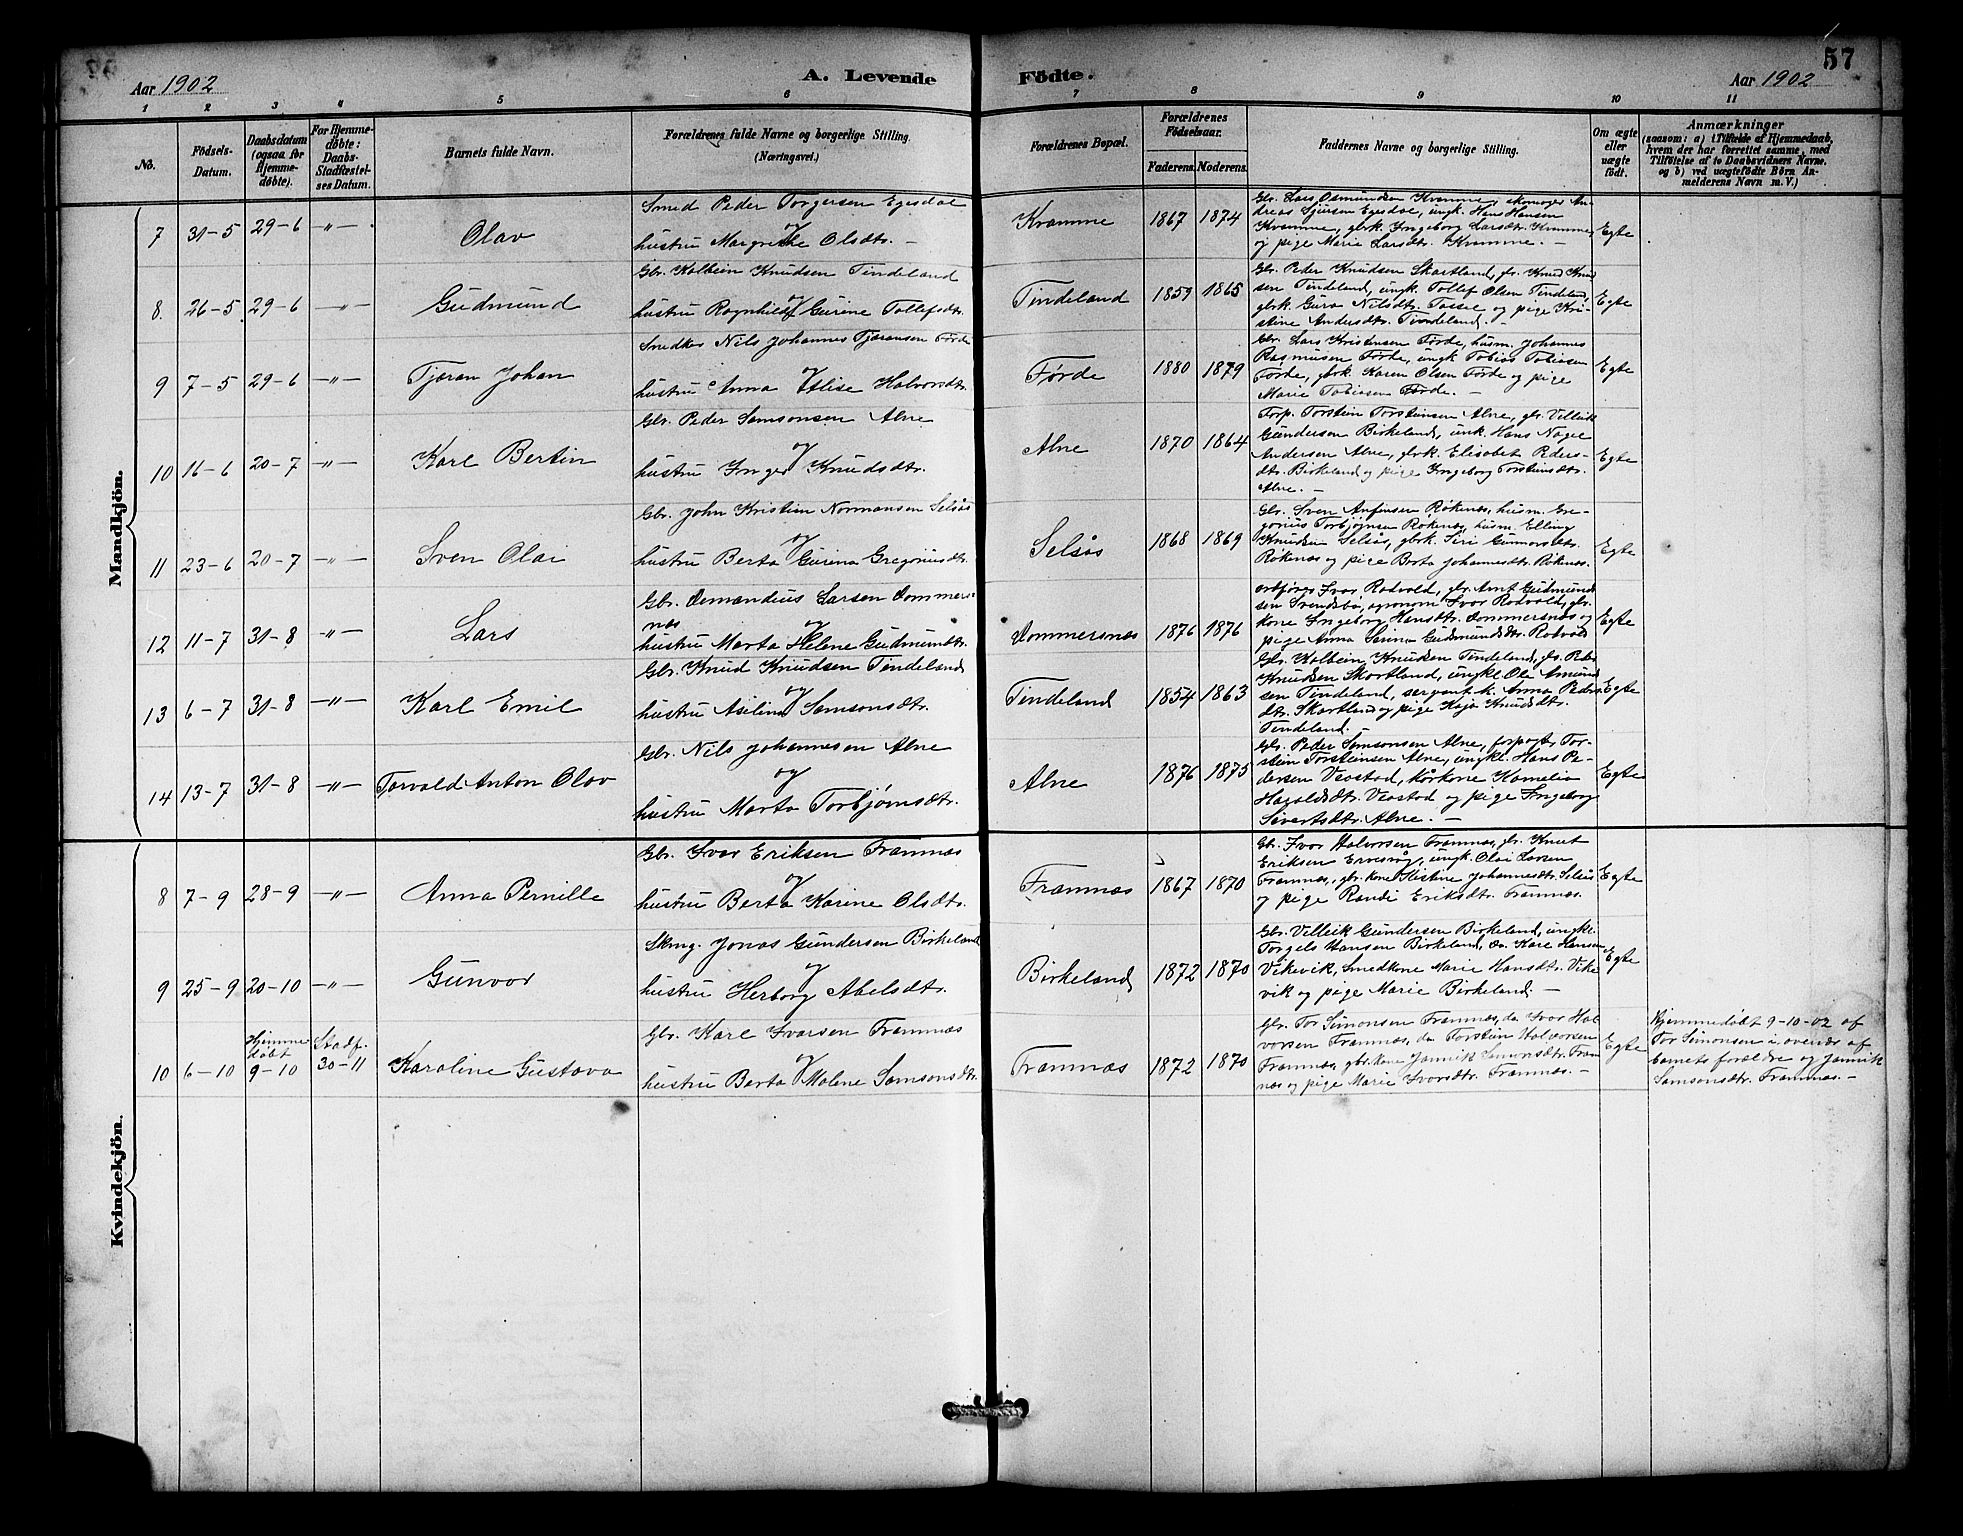 57
Aar 1902
A. Levende
Födte.
Aar 1902
1 2 3 4 5 6 7 8 9 10 11
No.
Födsels-Datum.
Daabsdatum (ogsaa for Hjemme-døbte).
For Hjemme-døbte: Daabs-Stadfæstel-ses Datum.
Barnets fulde Navn.
Forældrenes fulde Navne og borgerlige Stilling.
(Næringsvei.)
Forældrenes Bopæl.
Forældrenes Födselsaar.
Faderens. Moderens.
Faddernes Navne og borgerlige Stilling.
Om ægte eller uægte født.
Anmærkninger
(saasom: a) i Tilfælde af Hjemmedaab,
hvem der har forrettet samme, med
Tilföielse af to Daabsvidners Navne.
og b) ved uægtefödte Börn An-
melderens Navn m. V.)
Mandkjön.
7 31-5 29-6 -"- Olav
Smed Peder Torgersen Egesdal
og
hustru Margrethe Olsdtr. -
Kvamme 1867 1874
Gbr. Lars Osmundsen Kvamme, skomager An-
dreas Sjursen Egesdal, ungk. Hans Hansen
Kvamme, gbrk. Ingeborg Larsdtr. Kvamme,
og pige Marie Larsdtr. Kvamme. -
Egte
8 26-5 29-6 -"- Gudmund
Gbr. Kolbein Knudsen Tindeland
og
hustru Ragnhild Gurine Tollefsdtr.
Tindeland 1859 1865
Gbr. Peder Knudsen Skartland, gbr. Knud Knud
sen Tindeland, ungk. Tollef Olsen Tindeland,
gbrk. Guro Nilsdtr. og pige Kri-
stine Andersdtr. Tindeland. -
Egte
9 7-5 29-6 -"- Tjøran Johan
Snedker Nils Johannes Tjøransen Førde
og
hustru Anna Elise Halvorsdtr.
Førde 1880 1879
Gbr. Lars Kristensen Førde, husm. Johannes
Rasmusen Førde, ungk Tobias Tobiasen
Førde, gbrk. Karen Olsen Førde og pige
Marie Tobiasen Førde. -
Egte
10 16-6 20-7 -"- Karl Bertin
Gbr. Peder Samsonsen Alne
og
hustru Inger Knudsdtr.
Alne 1870 1864
Forp. Torstein Torsteinsen Alne, gbr. Velleik
Gundersen Birkeland, unk. Hans Nagel
Andersen Alne, gbrk. Elisabet Peders-
dtr. Birkeland og pige Ingeborg Torsteinsdtr.
Alne. -
Egte
11 23-6 20-7 -"- Sven Olai
Gbr. John Kristian Normansen Selsås
og
hustru Berta Gurina Gregoriusdtr.
Selsås 1868 1869
Gbr. Sven Anfinsen Røkenæs, husm. Gre-
gorius Torbjørnsen Røkenæs, husm. Elling
Knudsen Selsås, gbrk. Siri Gunnarsdtr.
Røkenæs og pige Berta Johannesdtr. Røkenæs.
Egte
12 11-7 31-8 -"- Lars
Gbr. Osmandius Larsen Dommers-
næs og
hustru Marta Helene Gudmundsdtr.
Dommersnæs 1876 1876
ordfører Ivar Rødvold, gbr. Arnt Gudmund
sen Svendsbø, agronom Ivar Rødvold, gbr.
kone Ingeborg Hansdtr. Dommersnæs og
pige Anna Serina Gudmundsdtr. Rødvold
Egte
13 6-7 31-8 -"- Karl Emil
Gbr. Knud Knudsen Tindeland
og
hustru Asilina Samsonsdtr.
Tindeland 1854 1863
Gbr. Kolbein Knudsen Tindeland, gbr. Peder
Knudsen Skartland, ungkl Ole Amund
sen Tindeland, sergent.k. Anna Peders
dtr. Skartland og pige Kaja Knudsdtr.
Tindeland.
Egte
14 13-7 31-8 -"- Torvald Anton Olav
Gbr. Nils Johannesen Alne
og
hustru Marta Torbjørnsdtr.
Alne 1876 1875
Gbr. Peder Samsonsen Alne, forpagt. Tor-
stein Torsteinsen Alne, ungkl. Hans Pe-
dersen Veastad, kårkone Kamelia
Haraldsdtr. Veastad og pige Ingeborg
Sivertsdtr. Alne. -
Egte
Kvindekjön.
8 7-9 28-9 -"- Anna Pernille
Gbr. Ivar Eriksen Framnæs
og
hustru Berta Karine Olsdtr.
Framnæs 1867 1870
Gbr. Ivar Halvorsen Framnæs, gbr. Knut
Eriksen Ervesvåg, ungk. Olai Larsen
Framnæs, gbr. kone Kristine Johannesdtr. Selsås
og pige Randi Eriksdtr. Framnæs.
Egte
9 25-9 20-10 -"- Gunvor
Skrug. Jonas Gundersen Birkeland
og
hustru Herborg Abelsdtr.
Birkeland 1872 1870
Gbr. Velleik Gundersen Birkeland, ungkl.
Torgels Hansen Birkeland, do. Karl Hansen
Vikevik, Smedkone Marie Hansdtr. Vike
vik og pige Marie Birkeland. -
Egte
10 6-10 Hjemme døbt 9-10 Stadf. 30-11 Karoline Gustava
Gbr. Karl Ivarsen Framnæs
og
hustru Berta Malene Samsonsdtr.
Framnæs 1872 1870
Gbr. Tor Simonsen Framnæs, do Ivar Hal
vorsen Framnæs, do Torstein Halvorsen
Framnæs, gbr. kone Jannik Samsonsdtr. Fram
næs og pige Marie Ivarsdtr. Framnæs. -
Egte
Hjemmedøbt 9-10-02 af
Tor Simonsen i overvær af
barnets forældre og Jannik
Samsonsdtr. Framnæs. -